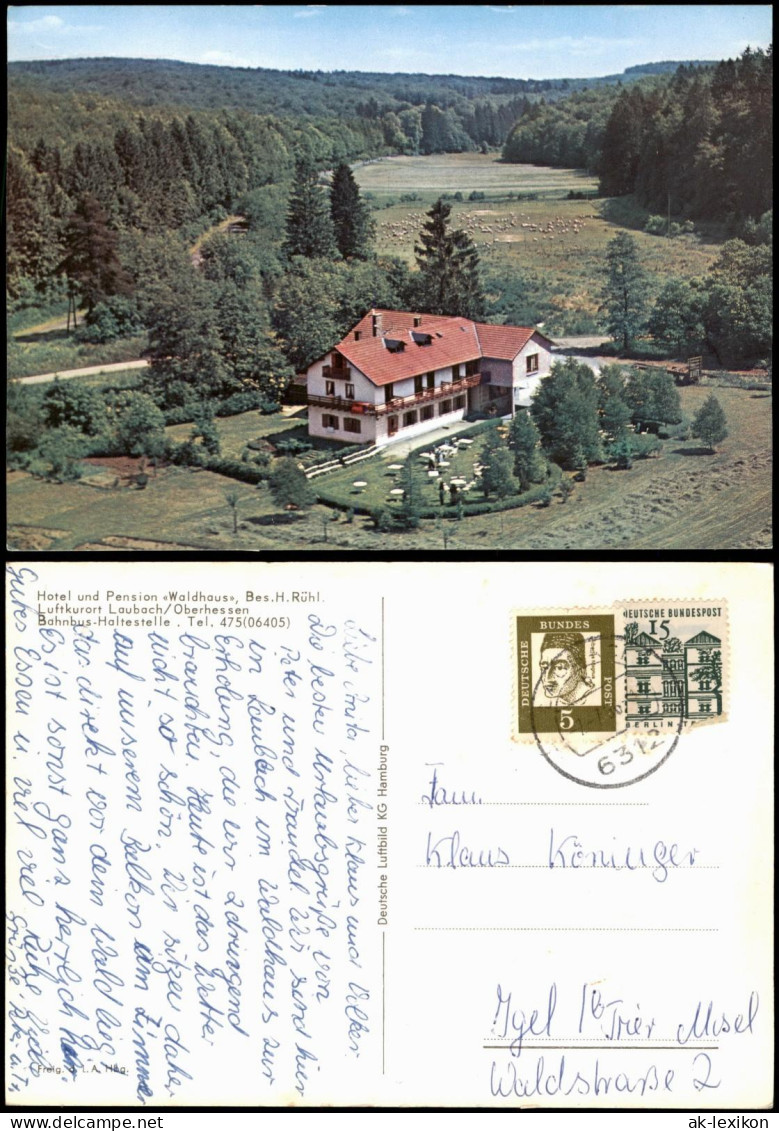 Hotel und Pension «Waldhaus», Bes.H.Rühl.
Luftkurort Laubach/Oberhessen
Bahnbus-Haltestelle . Tel. 475(06405)
Liebe Anita, lieber Klaus und Volker
Die besten Urlaubsgrüße von
Peter und Traudel. Wir sind hier
in Laubach im Waldhaus zur
Erholung, die wir dringend
brauchten. Heute ist das Wetter
nicht so schön. Wir sitzen daher
auf unserem Balkon am Zimmer
das direkt vor dem Wald lieg
Es ist sonst ganz herrlich hier
Gutes Essen u. viel viel Ruhe.
Grüße
Freig. d. L.A. Hbg.
Deutsche Luftbild KG Hamburg
DEUTSCHE BUNDESPOST
5
DEUTSCHE BUNDESPOST
15
BERLIN-TE
6312
Fam.
Klaus Köninger
Igel b/ Trier Mosel
Waldstraße 2
© ak-lexikon
ak-lexikon.com